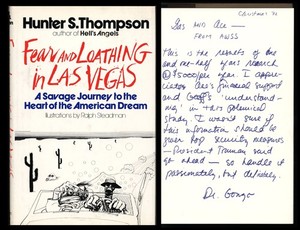 Hunter S. Thompson
author of Hell's Angels
FEAR AND LOATHING
IN LAS VEGAS
A Savage Journey to the
Heart of the American Dream
Illustrations by Ralph Steadman
Gus AND Ace —
FROM AWSS
this is the results of the
and one-half years research
@ $5000/per year. I appre-
ciate Ace's financial support
and Gus's "understand-
ing" in this polemical
study. I wasn't sure if
this information should be
given top security measures
— President Truman said
go ahead — so handle it
passionately, but delicately.
Dr. Gonzo